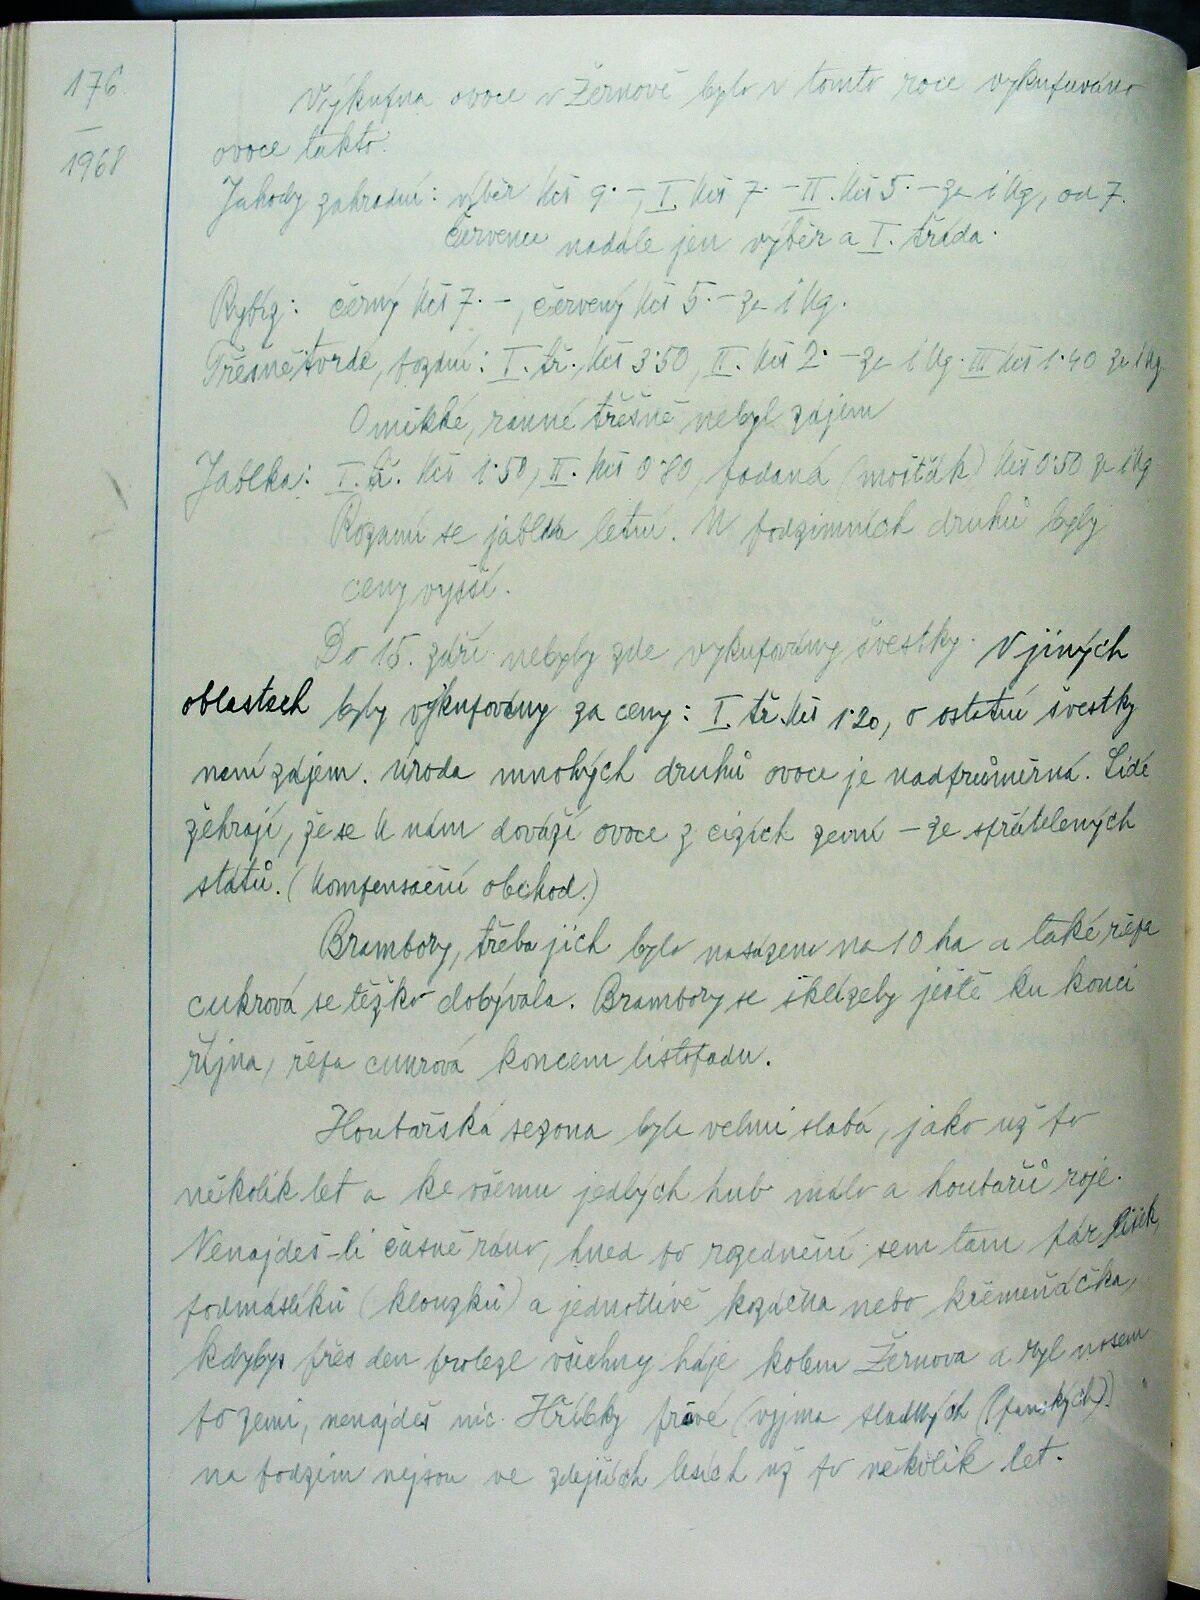 176.
—
1968
Výkupna ovoce v Žernově bylo v tomto roce vykupováno
ovoce takto:
Jahody zahradní: výběr Kčs 9.–, I. Kčs 7.– II. Kčs 5.– za 1 kg, od 7.
července nadále jen výběr a I. třída.
Rybíz: černý Kčs 7.–, červený Kčs 5.– za 1 kg.
Třešně tvrdé, pozdní: I. tř. Kčs 3.50, II. Kčs 2.– za 1 kg. III Kčs 1.40 za 1 kg
O měkké, ranné třešně nebyl zájem
Jablka: I. tř. Kčs 1.50, II. Kčs 0.80, padaná (mošťák) Kčs 0.50 za 1 kg
Rozumí se jablka letní. U podzimních druhů byly
ceny vyšší.
Do 15. září nebyly zde vykupovány švestky. V jiných
oblastech byly výkupovány za ceny: I. tř. Kčs 1.20, o ostatní švestky
není zájem. Úroda mnohých druhů ovoce je nadprůměrná. Lidé
žehrají, že se k nám dováží ovoce z cizích zemí – ze spřátelených
států. (Kompensační obchod.)
Brambory, třeba jich bylo nasázeno na 10 ha a také řepa
cukrová se těžko dobývala. Brambory se sklízely ještě ku konci
října, řepa cukrová koncem listopadu.
Houbařská sezona byla velmi slabá, jako už po
několik let a ke všemu jedlých hub málo a houbařů roje.
Nenajdeš-li časně ráno, hned po rozednění sem tam pár lišek,
podmáslíků (klouzků) a jednotlivě kozáčka nebo křemenáčka,
kdybys přes den prolezl všechny háje kolem Žernova a ryl nosem
po zemi, nenajdeš nic. Hřibky pravé (vyjma sladkých (panských))
na podzim nejsou ve zdejších lesích už po několik let.